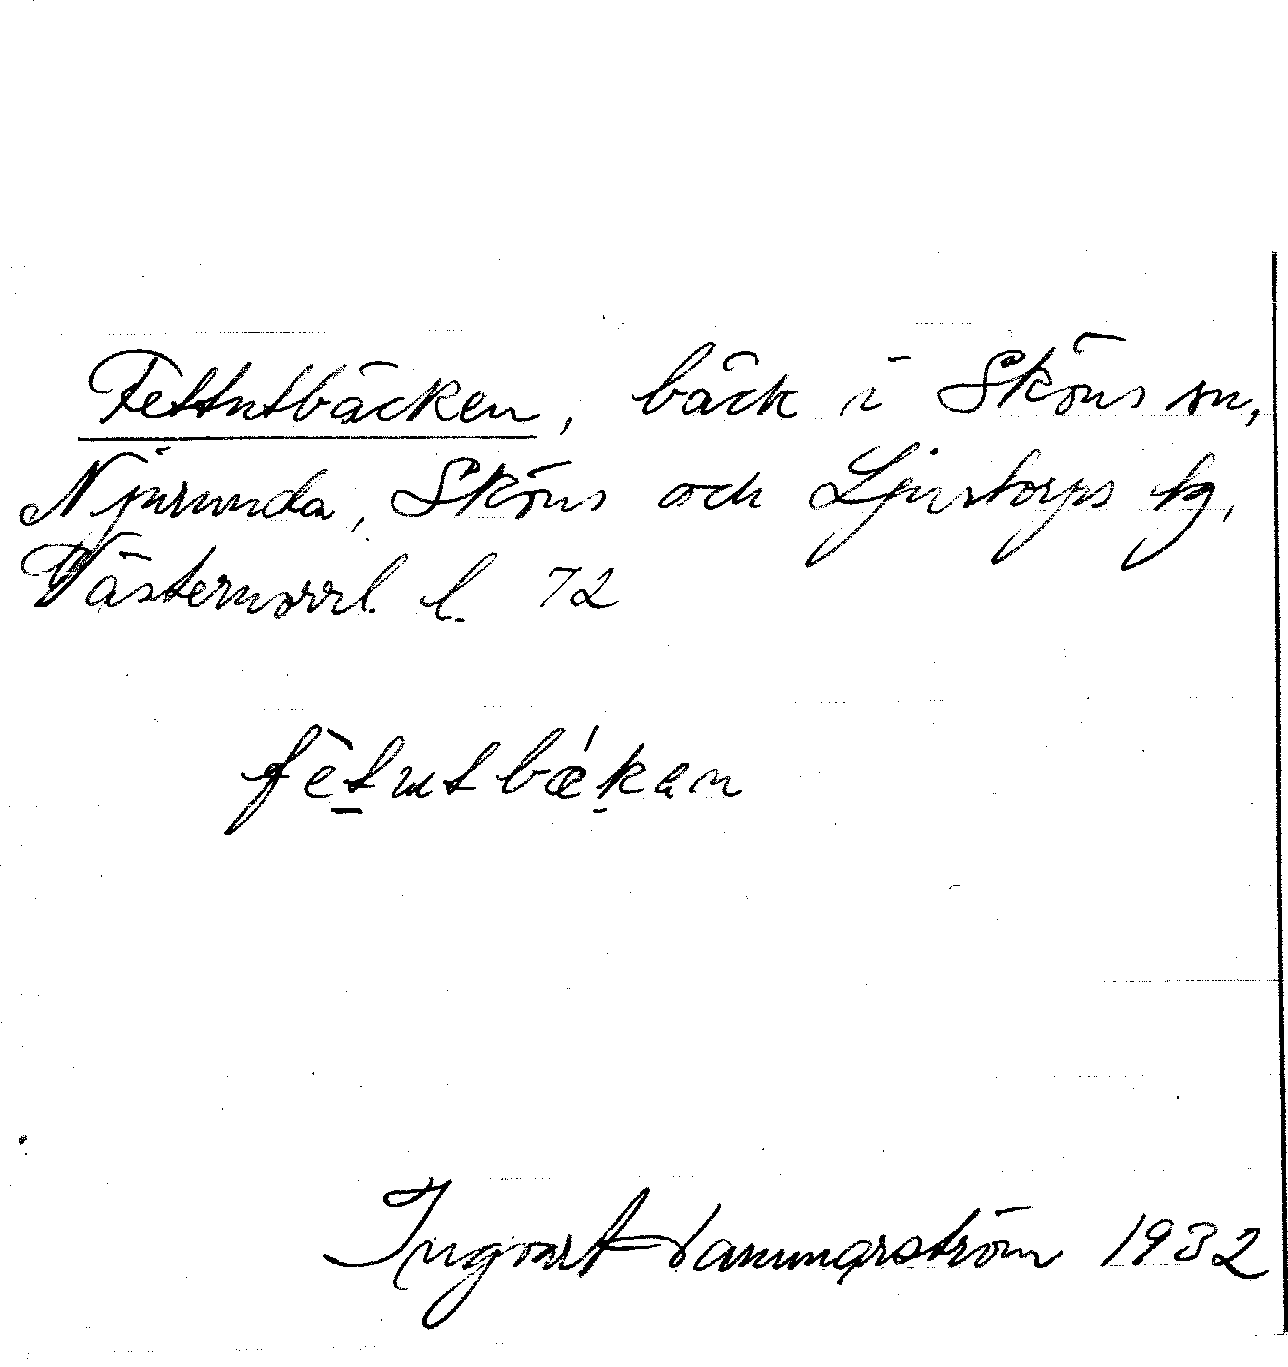 Fettutbäcken, bäck i Sköns sn,
Njurunda, Sköns och Ljustorps tg,
Västernorrl. l. 72
fètutbǽkan
Ingvart Hammarström 1932